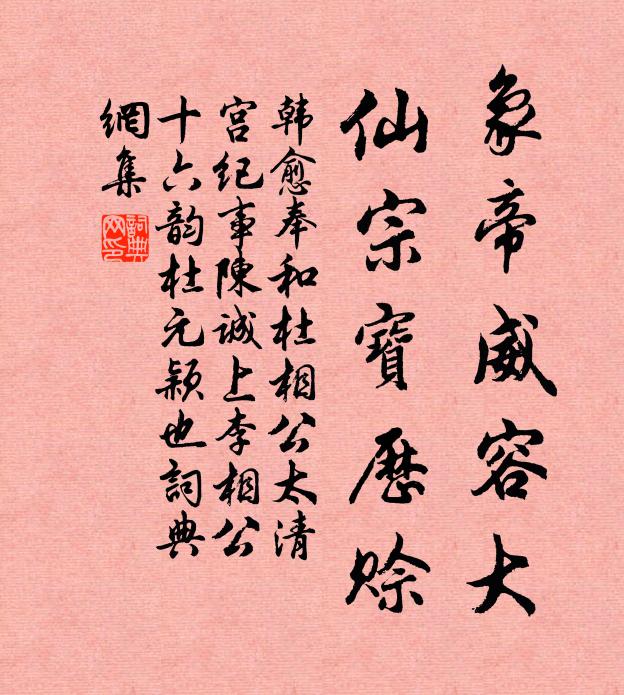 象帝威容大
仙宗寶歷賒
韩愈奉和杜相公太清
宫纪事陳诚上李相公
十六韵杜元颖也詞典
網集
詞典
网印